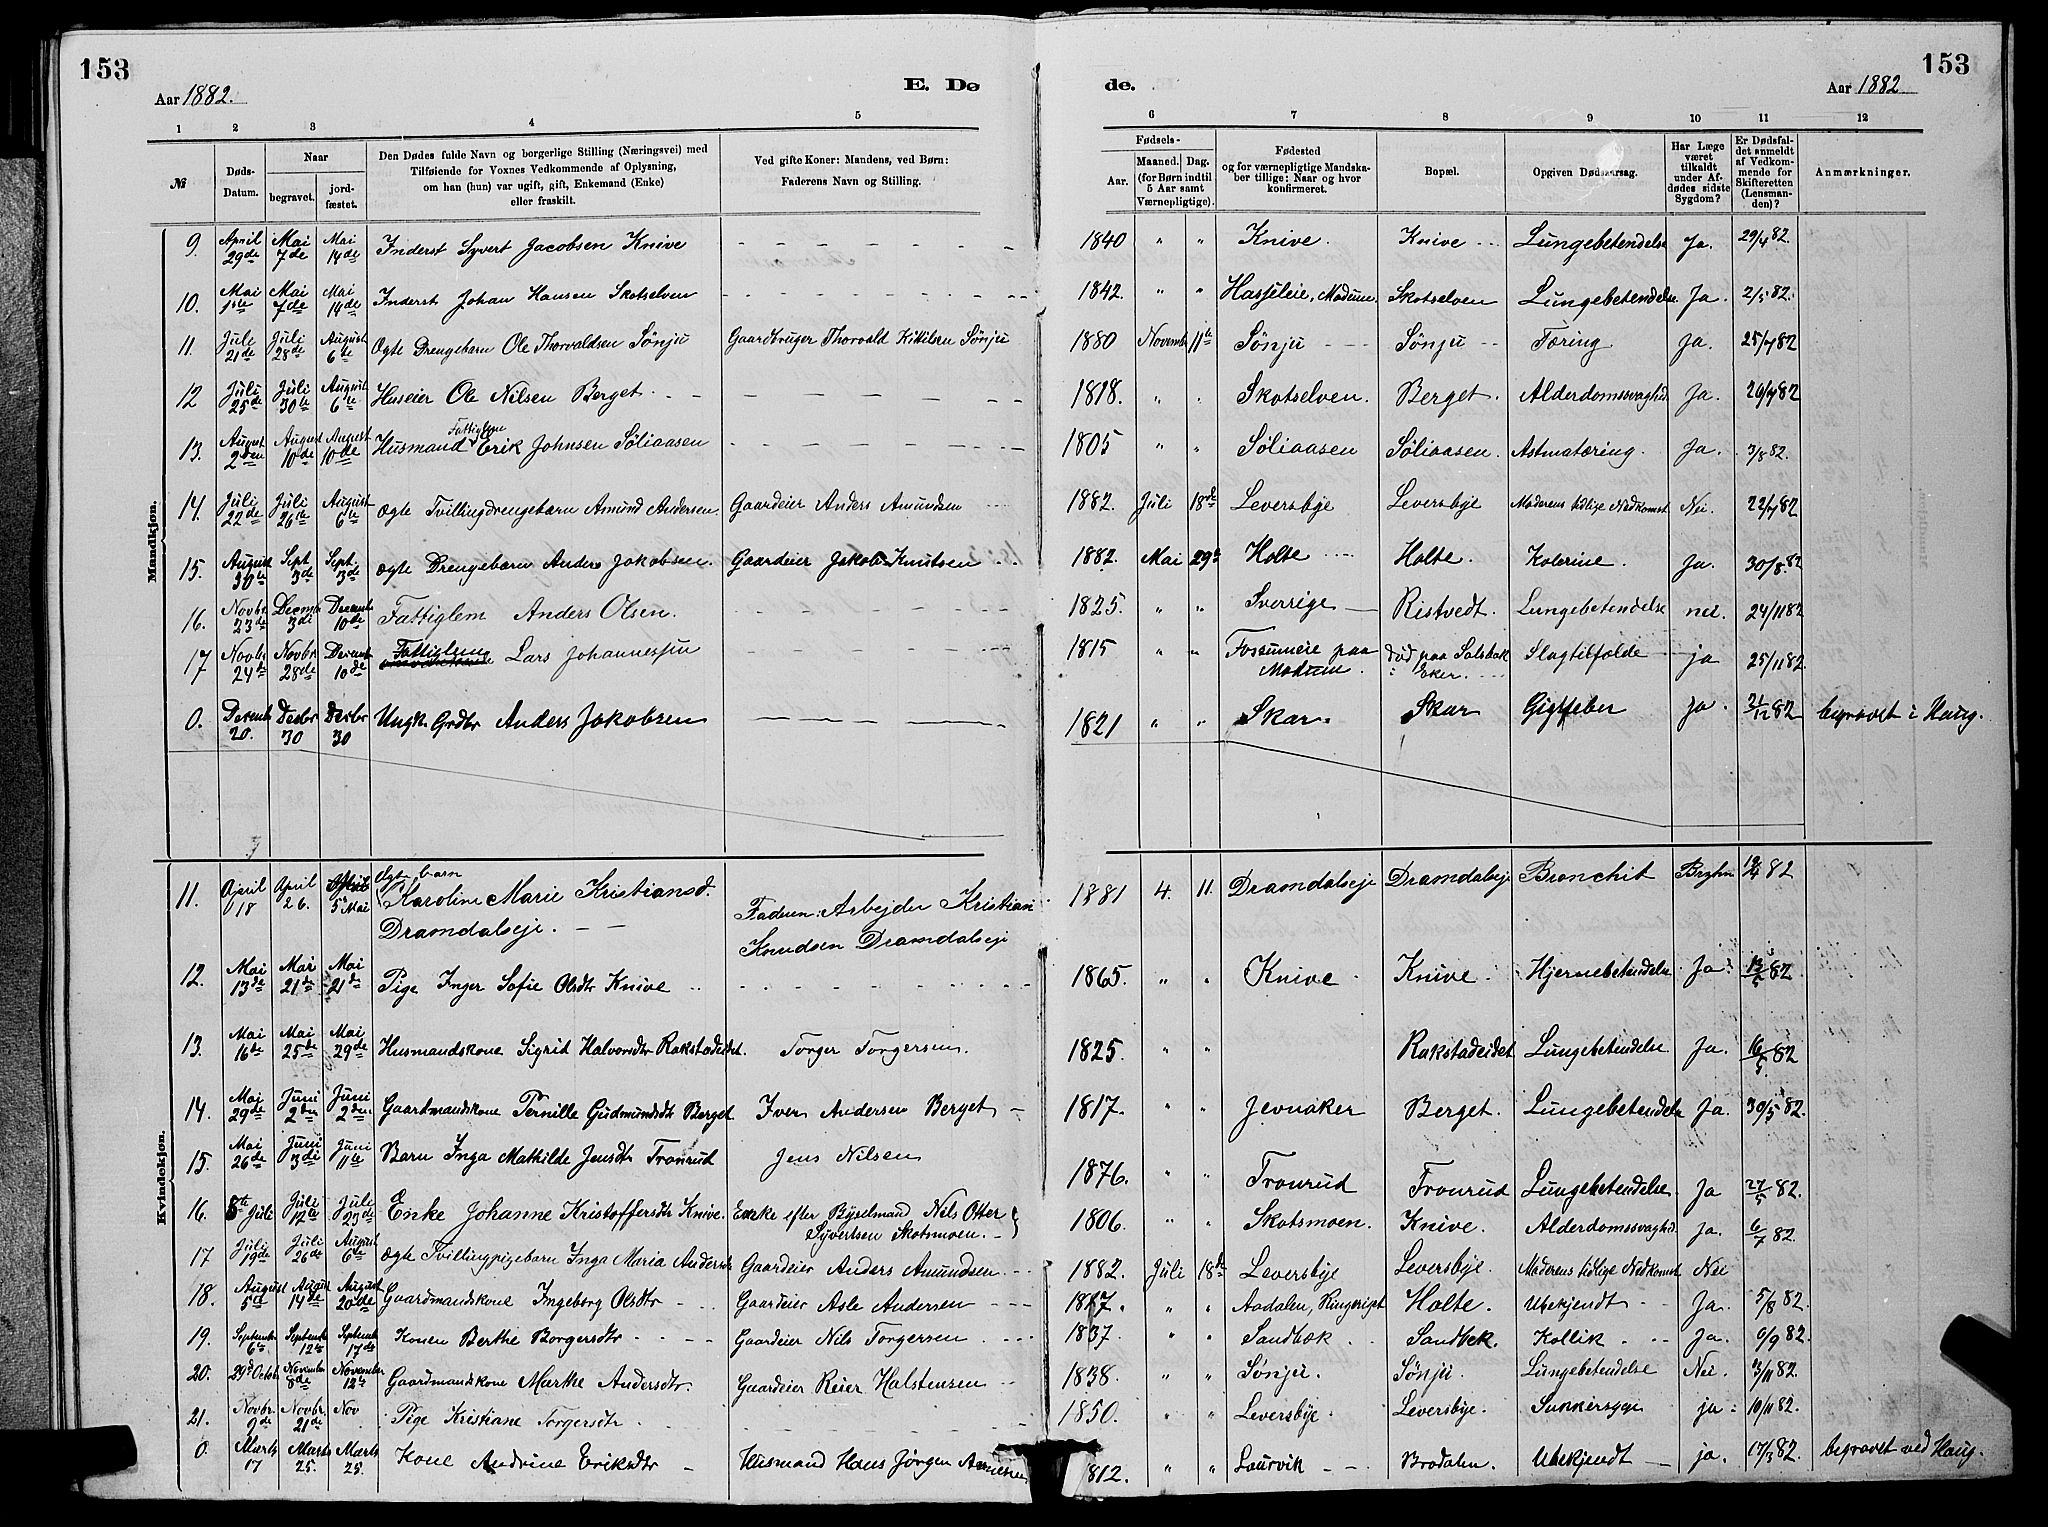 153
Aar 1882.
E. Dø
1 2 3 4 5
№
Døds-Datum.
Naar
begravet.
jord-fæstet.
Den Dødes fulde Navn og borgerlige Stilling (Næringsvei) med
Tilføiende for Voxnes Vedkommende af Oplysning,
om han (hun) var ugift, gift, Enkemand (Enke)
eller fraskilt.
Ved gifte Koner: Mandens, ved Børn:
Faderens Navn og Stilling.
Mandkjøn.
9. April 29de Mai 7de Mai 14de Inderst Syvert Jacobsen Knive
10. Mai 1ste Mai 7de Mai 14de Inderst Johan Hansen Skotselven
11. Juli 21de Juli 28de August 6te Ægte Drengebarn Ole Thorvaldsen Sønju Gaardbruger Thorvald Kittilsen Sønju
12 Juli 25de Juli 30te August 6te Huseier Ole Nilsen Berget
13. August 2den August 10de August 10de Husmand Fattiglem Erik Johnsen Søliaasen
14. Juli 22de Juli 26te August 6te Ægte Tvillingdrengebarn Amund Andersen. Gaardeier Anders Amundsen
15. August 30te Sept 3de Sept. 3de Ægte Drengebarn Anders Jakobsen. Gaardeier Jakob Knutsen
16. Novbr. 23de Decmb 3di Decemb 10de Fattiglem Anders Olsen.
17 Novbr 24de Novbr. 28de Decemb 10de Fattiglem Lars Johannessen
0. Decemb 20. Decbr 30 Decbr 30 Ungk. Grdbr Anders Jakobsen
Kvindekjøn.
11. April 18 April 26. April 5 Mai Ægte barn Karoline Marie Kristiansd.
Dramdalseje. Faderen: Arbejder Kristian
Knudsen Dramdalseje
12. Mai 13de Mai 21de Mai 21de Pige Inger Sofie Olsdtr Knive
13. Mai 16de Mai 25de Mai 29de Husmandskone Sigrid Halvorsdtr Rakstadeidet. Torger Torgersen.
14. Mai 29de Juni 2den Juni 2den Gaardmandskone Pernille Gudmundsdtr Berget Iver Andersen Berget
15. Mai 26de Juni 3di Juni 11te Barn Inga Mathilde Jensdtr Tronrud Jens Nilsen
16. 5te Juli Juli 12te Juli 23de Enke Johanne Kristoffersdtr Knive. Enke efter Nils Otter
Syvertsen Skotsmoen.
17 Juli 19de Juli 26de August 6te Ægte Tvillingpigebarn Inga Maria Andersdtr Gaardeier Anders Amundsen
18. August 5te August 14de August 20de Gaardmandskone Ingeborg Olsdtr Gaardeier Asle Andersen
19. Septembr 6te Septembr 12te Septembr 17de Konen Berthe Borgersdtr Gaardeier Nils Torgersen
20. 29d Octob November 8de November 12te Gaardmandskone Marthe Andersdtr. Gaardeier Reier Halstensen
21. Novbr. 9de Novbr. 21de Nov Pige Kristiane Torgersdtr
0. Marts 17 Marts 25. Marts 25. Kone Andrine Eriksdtr Husmand Hans Jørgen Amundsen
153
de.
Aar 1882
6 7 8 9 10 11 12
Fødsels-
Aar.
Maaned. Dag.
(for Børn indtil
5 Aar samt
Værnepligtige).
Fødested
og for værnepligtige Mandska-
ber tillige: Naar og hvor
konfirmeret.
Bopæl.
Opgiven Dødsaarsag.
Har Læge
været
tilkaldt
under Af-
dødes sidste
Sygdom?
Er Dødsfal-
det anmeldt
af Vedkom-
mende for
Skifteretten
(Lensman-
den)?
Anmærkninger.
1840 " " Knive. Knive Lungebetendelse Ja. 29/4 82.
1842. " " Hasseleie, Modum. Skotselven Lungebetendelse Ja. 2/5 82.
1880 Novemb 11te Sønju Sønju Tæring Ja. 25/7 82
1818. " " Skotselven. Berget. Alderdomssvaghd. Ja. 26/7 82
1805 " " Søliaasen Søliaasen. Astmatæring. Ja. 3/8 82.
1882. Juli 18de Leversbye Leversbye Moderens tidlige Nedkomst Nei. 22/7 82
1882. Mai 29de Holte Holte. Kolerine. Ja. 30/8. 82
1825. " " Sverrige Ristvedt. Lungebetendelse nei. 24/11 82
1815 " " Fossumeie paa
Modum. død paa Solsbak
Eker. Slagtilfælde ja 25/11 82.
1821 " " Skar. Skar Gigtfeber Ja. 21/12 82 begravet i Haug.
1881 4. 11. Dramdalseje Dramdalseje Bronchit Bryhn 19/4 82
1865. " " Knive Knive Hjernebetendelse Ja. 13/5 82
1825. " " Rakstadeidet Lungebetendelse Ja. 16/5 82
1817. " " Jevnaker Berget. Lungebetendelse Ja. 30/5 82.
1876. " " Tronrud Tronrud Lungebetendelse. Ja 27/5 82.
1806. " " Skotsmoen. Knive. Alderdomssvaghd. Ja. 6/7 82.
1882. Juli 18de Leversbye Leversbye. Moderens tidlige Nedkomst Nei
1817. " " Aadalen, Ringeriget Holte. Ubekjendt Ja. 5/8 82.
1837. " " Sandbæk. Sandbek. Kollik Ja. 6/9 82.
1838. " " Sønju. Sønju. Lungebetendelse Nei. 3/11 82.
1850. " " Leversbye. Leversbye. Sukkersyge ja. 10/11 82.
1812. " " Laurvik Brodalen. Ubekjendt ja. 17/3 82. begravet ved Haug.